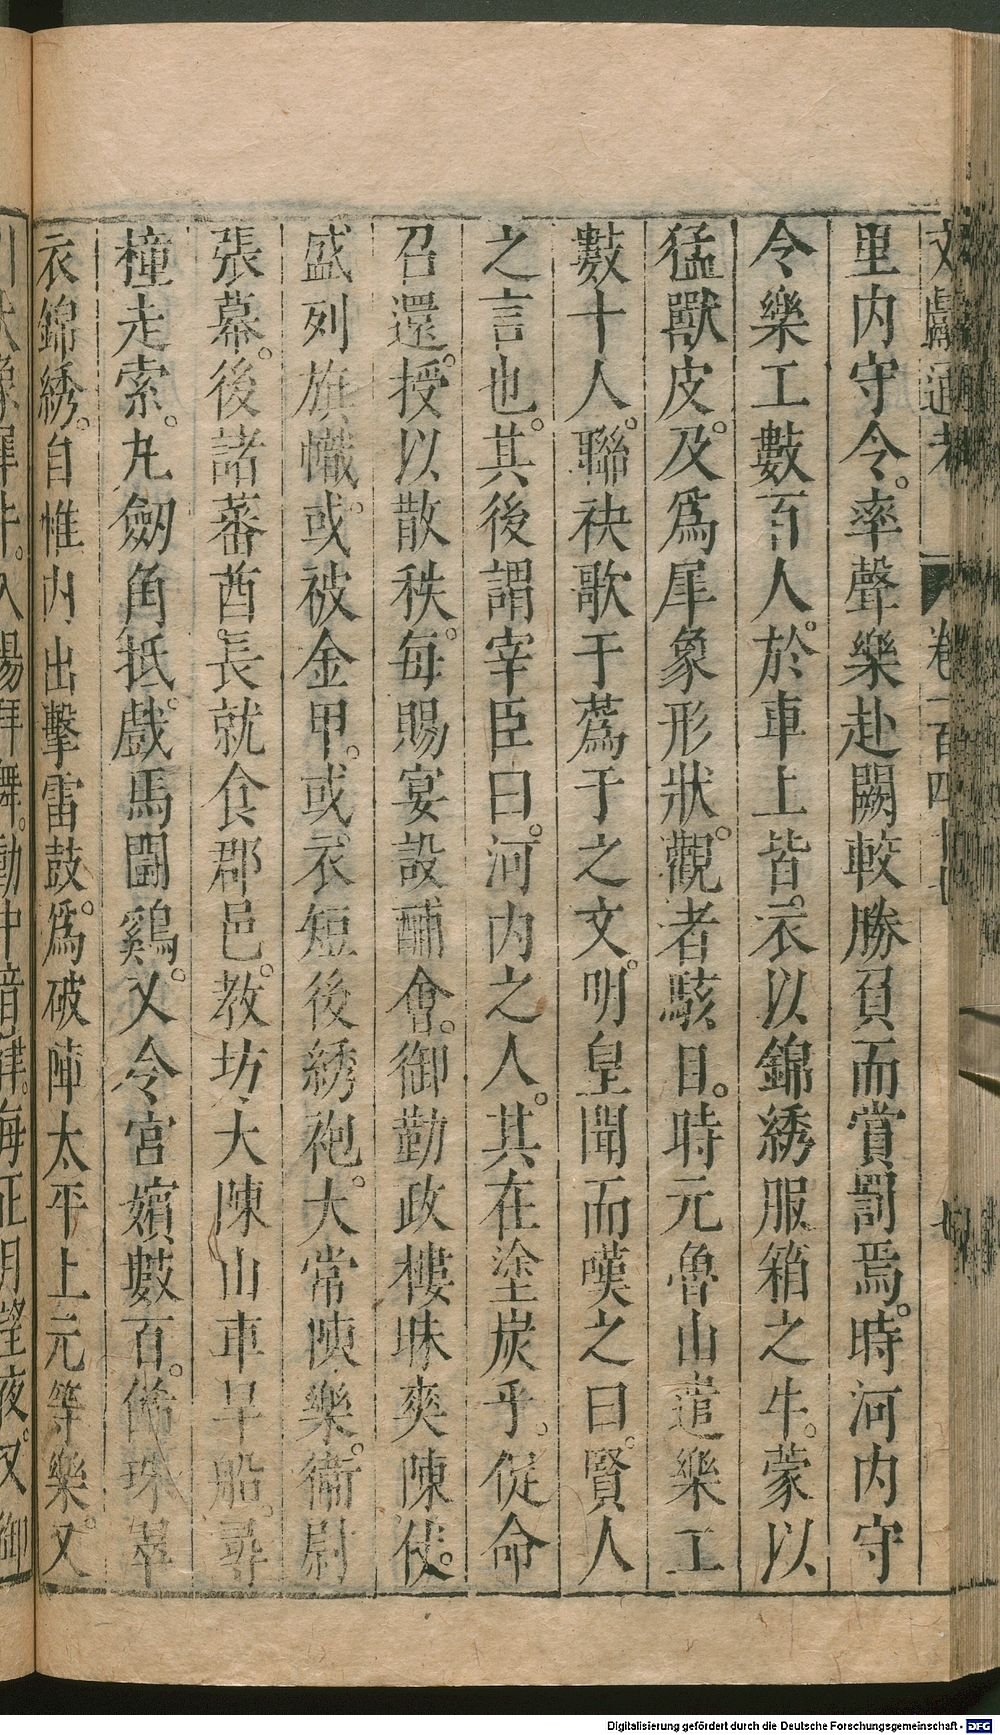 文獻通考 卷一百四十七
里内守令。率聲樂赴闕較勝負而賞罰焉。時河内守
令樂工數百人。於車上皆。衣以錦綉服箱之牛。蒙以
猛獸皮。及爲犀象形狀。觀者駭目。時元魯山遣樂工
數十人。聯袂歌于蔿于之文。明皇聞而嘆之曰。賢人
之言也。其後謂宰臣曰。河内之人。其在塗炭乎。促命
召還。授以散秩。每賜宴設酺會。御勤政樓昧爽陳仗。
盛列旗幟。或被金甲。或衣短後綉袍。大常陳樂。衞尉
張幕。後諸蕃酋長就食郡邑。教坊大陳山車旱船。尋
橦走索。丸劒角抵。戲馬鬪鷄。又令宮嬪數百。飾珠翠
衣錦綉。自帷内出擊雷鼓。爲破陣太平上元等樂。又
入場拜舞。動中音律。每正月望夜。又御
Digitalisierung gefördert durch die Deutsche Forschungsgemeinschaft - DFG